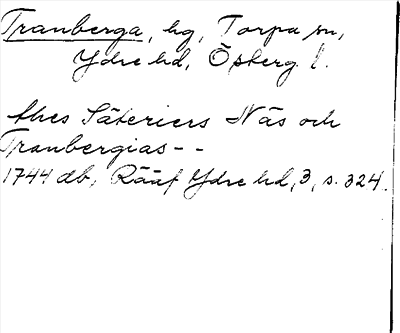 Tranberga, hg, Torpa sn,
Ydre hd, Österg. l.
thes Säteriers Näs och
Tranbergias - -
1744 db, Rääf Ydre hd, 3, s. 324.